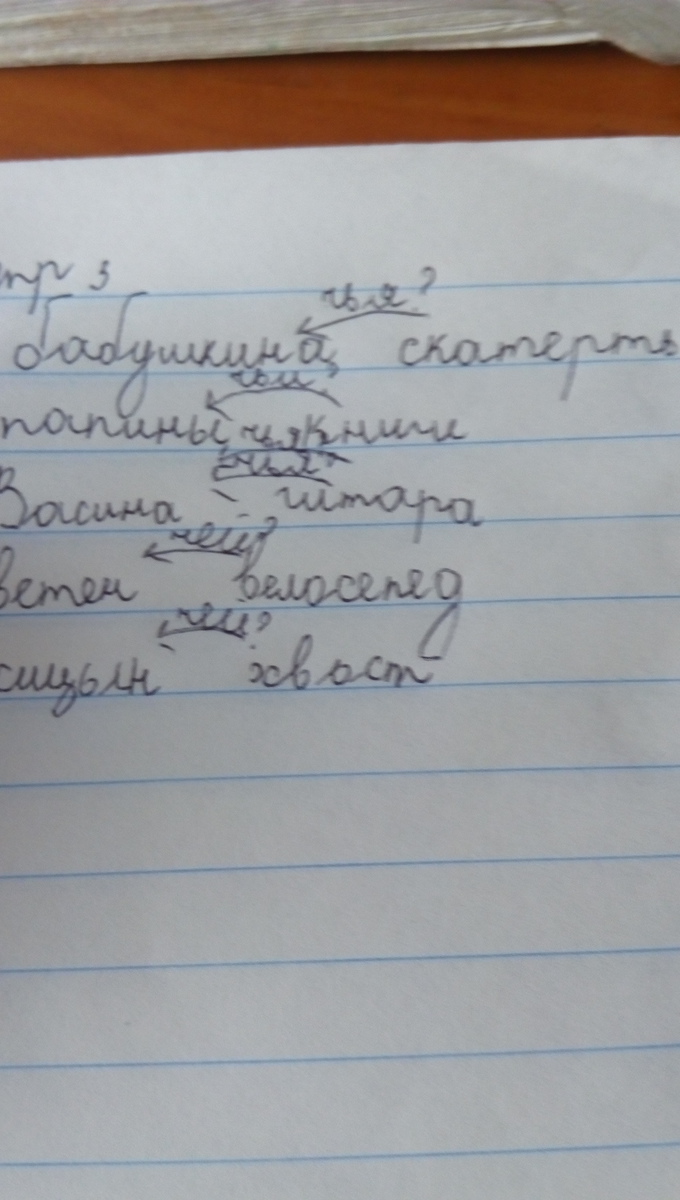 стр 3
чья?
бабушкина скатерть
чьи?
папины книги
чья?
Васина гитара
чей?
Светин велосипед
чей?
лисицын хвост